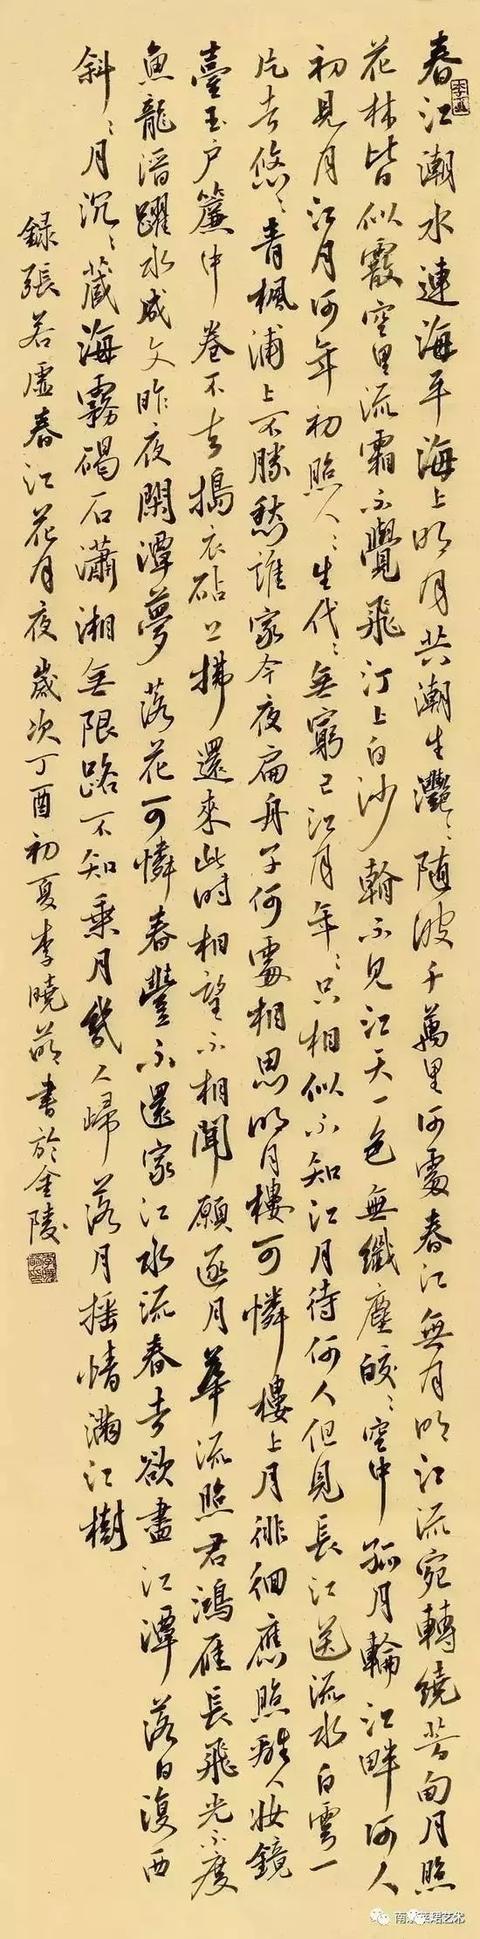 春江潮水連海平海上明月共潮生灔〻随波千萬里何處春江無月明江流宛轉繞芳甸月照
花林皆似霰空里流霜不覺飛汀上白沙看不見江天一色無纖塵皎〻空中孤月輪江畔何人
初見月江月何年初照人〻生代〻無窮已江月年〻只相似不知江月待何人但見長江送流水白雲一
片去悠〻青楓浦上不勝愁誰家今夜扁舟子何處相思明月樓可憐樓上月徘徊應照離人妝鏡
臺玉户簾中卷不去搗衣砧上拂還來此時相望不相聞願逐月華流照君鴻雁長飛光不度
魚龍潛躍水成文昨夜閑潭夢落花可憐春半不還家江水流春去欲盡江潭落月復西
斜〻月沉〻藏海霧碣石瀟湘無限路不知乘月幾人歸落月搖情滿江樹
録張若虛春江花月夜歲次丁酉初夏李曉書於金陵
南京艺术